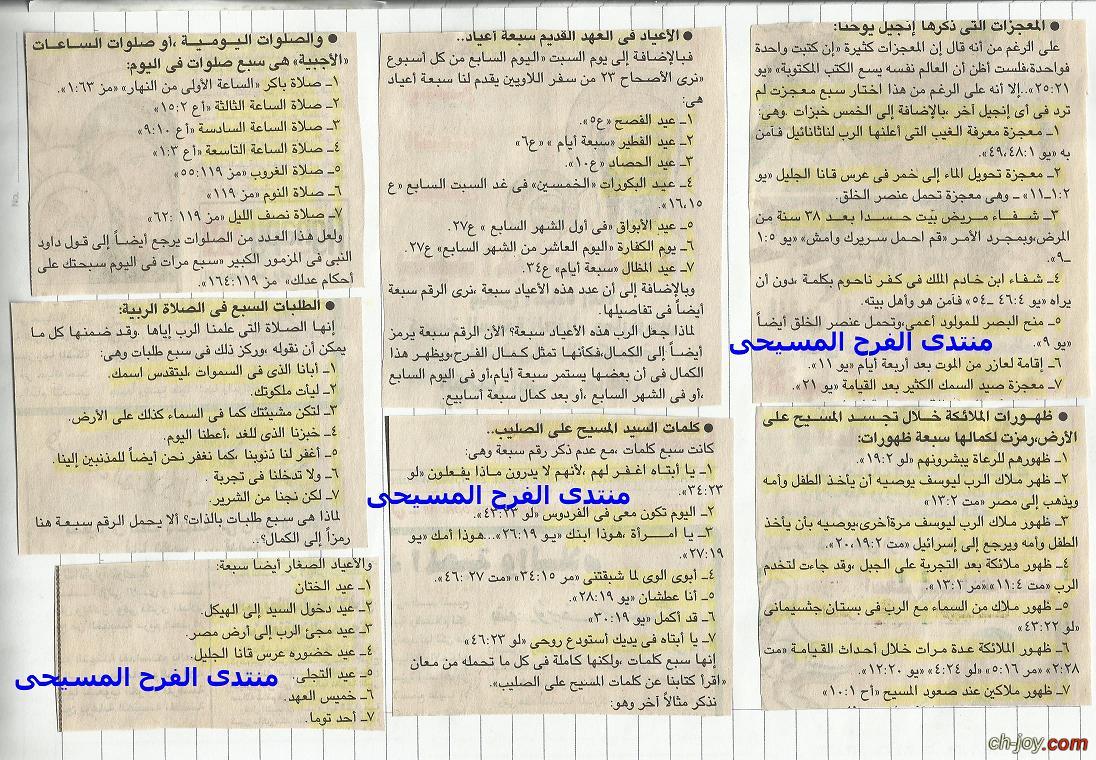 ● المعجزات التى ذكرها إنجيل يوحنا:
على الرغم من أنه قال إن المعجزات كثيرة «إن كتبت واحدة
فواحدة،فلست أظن أن العالم نفسه يسع الكتب المكتوبة» «يو
٢٥:٢١»..إلا أنه على الرغم من هذا اختار سبع معجزات لم
ترد فى أى إنجيل آخر ،بالإضافة إلى الخمس خبزات .وهى:
١ـ معجزة معرفة الغيب التى أعلنها الرب لناثانائيل فآمن
به «يو ٤٩،٤٨:١»
٢ـ معجزة تحويل الماء إلى خمر فى عرس قانا الجليل «يو
١:٢ـ١١» ـ وهى معجزة تحمل عنصر الخلق.
٣ـ شـفـاء مـريـض بيت حسـدا بـعـد ٣٨ سنة من
المرض،وبمجرد الأمـر «قم احمل سريرك وامش» «يو ١:٥
ـ٩».
٤ـ شفاء ابن خادم الملك فى كفر ناحوم بكلمة ،دون أن
يراه «يو ٤٦:٤ ـ٥٤» فآمن هو وأهل بيته.
٥ـ منح البصر للمولود أعمى،وتحمل عنصر الخلق أيضاً
«يو ٩».
منتدى الفرح المسيحى
٦ـ إقامة لعازر من الموت بعد أربعة أيام «يو ١١».
٧ـ معجزة صيد السمك الكثير بعد القيامة «يو ٢١».
● ظهورات الملائكة خلال تجسد المسيح على
الأرض،رمزت لكمالها سبعة ظهورات:
١ـ ظهورهم للرعاة يبشرونهم «لو ١٩:٢».
٢ـ ظهر ملاك الرب ليوسف يوصيه أن يأخذ الطفل وأمه
ويذهب إلى مصر «مت ١٣:٢»
٣ـ ظهور ملاك الرب ليوسف مرة أخرى،يوصيه بأن يأخذ
الطفل وأمه ويرجع إلى إسرائيل «مت ١٩:٢،٢٠».
٤ـ ظهور ملائكة بعد التجربة على الجبل ،وقد جاءت لتخدم
الرب «مت ١١:٤» «مر ١٣:١».
٥ـ ظهور ملاك من السماء مع الرب فى بستان جثسيمانى
«لو ٤٣:٢٢»
٦ـ ظهور الملائكة عدة مرات خلال أحداث القيامة «مت
٢:٢٨» «مر ٥:١٦» «لو ٤:٢٤» «يو ١٢:٢٠».
٧ـ ظهور ملاكين عند صعود المسيح «أح ١٠:١»
● الأعياد فى العهد القديم سبعة أعياد..
فبالإضافة إلى يوم السبت «اليوم السابع من كل أسبوع
«نرى الأصحاح ٢٣ من سفر اللاويين يقدم لنا سبعة أعياد
هى:
١ـ عيد الفصح «ع٥».
٢ـ عيد الفطير «سبعة أيام » «ع٦»
٣ـ عيد الحصاد «ع١٠».
٤ـ عيـد البكورات «الخمسين» فى غد السبت السابع «ع
١٦،١٥».
٥ـ عيد الأبواق «فى أول الشهر السابع » ع٢٧.
٦ـ يوم الكفارة «اليوم العاشر من الشهر السابع» ع٢٧.
٧ـ عيد المظال «سبعة أيام» ع٣٤.
وبالإضافة إلى أن عدد هذه الأعياد سبعة ،نرى الرقم سبعة
أيضاً فى تفاصيلها.
لماذا جعل الرب هذه الأعياد سبعة؟ ألأن الرقم سبعة يرمز
أيضـاً إلى الكمال،فكأنها تمثل كـمال الفـرح،ويظهر هذا
الكمال فى أن بعضها يستمر سبعة أيام،أو فى اليوم السابع
،أو فى الشهر السابع ،أو بعد كمال سبعة أسابيع.
● كلمات السيد المسيح على الصليب..
كانت سبع كلمات ،مع عدم ذكر رقم سبعة وهى:
١ـ يا أبتـاه اغفـر لهم ،لأنهم لا يدرون مـاذا يفعلون «لو
٣٤:٢٣».
منتدى الفرح المسيحى
٢ـ اليوم تكون معى فى الفردوس «لو ٤٣:٢٣».
٣ـ يـا امـرأة ،هوذا ابنك «يو ٢٦:١٩»...هوذا أمك «يو
٢٧:١٩».
٤ـ أبوى الوى لما شبقتنى «مر ٣٤:١٥» «مت ٢٧ :٤٦».
٥ـ أنا عطشان «يو ٢٨:١٩».
٦ـ قد أكمل «يو ٣٠:١٩».
٧ـ يا أبتاه فى يديك أستودع روحى «لو ٤٦:٢٣»
إنها سبع كلمات ،ولكنها كاملة فى كل ما تحمله من معان
«اقرأ كتابنا عن كلمات المسيح على الصليب».
نذكر مثالاً آخر وهو:
● والصلوات اليومـيـة ،أو صلوات السـاعـات
«الأجبية» هى سبع صلوات فى اليوم:
١ـ صلاة باكر «الساعة الأولى من النهار» «مز ١:٦٣».
٢ـ صلاة الساعة الثالثة «أع ١٥:٢»
٣ـ صلاة الساعة السادسة «أع ٩:١٠»
٤ـ صلاة الساعة التاسعة «أع ١:٣»
٥ـ صلاة الغروب «مز ٥٥:١١٩»
٦ـ صلاة النوم «مز ١١٩»
٧ـ صلاة نصف الليل «مز ١١٩ :٦٢».
ولعل هـذا العـدد من الصلوات يرجع أيضـاً إلى قـول داود
النبى فى المزمور الكبير «سبع مرات فى اليوم سبحتك على
أحكام عدلك» «مز ١٦٤:١١٩».
● الطلبات السبع فى الصلاة الربية:
إنـها الصلاة التى علمنا الرب إياها .وقد ضمنها كل ما
يمكن أن نقوله ،وركز ذلك فى سبع طلبات وهى:
١ـ أبانا الذى فى السموات ،ليتقدس اسمك.
٢ـ ليأت ملكوتك.
٣ـ لتكن مشيئتك كما فى السماء كذلك على الأرض.
٤ـ خبزنا الذى للغد ،أعطنا اليوم.
٥ـ أغفر لنا ذنوبنا ،كما نغفر نحن أيضاً للمذنبين إلينا.
٦ـ ولا تدخلنا فى تجربة .
٧ـ لكن نجنا من الشرير.
لماذا هى سبع طلبات بالذات؟ ألا يحمل الرقم سبعة هنا
رمزاً إلى الكمال؟..
والأعياد الصغار أيضا سبعة:
١ـ عيد الختان
٢ـ عيد دخول السيد إلى الهيكل.
٣ـ عيد مجئ الرب إلى أرض مصر.
٤ـ عيد حضوره عرس قانا الجليل.
٥ـ عيد التجلى.
منتدى الفرح المسيحى
٦ـ خميس العهد.
٧ـ أحد توما.
ch-joy.com